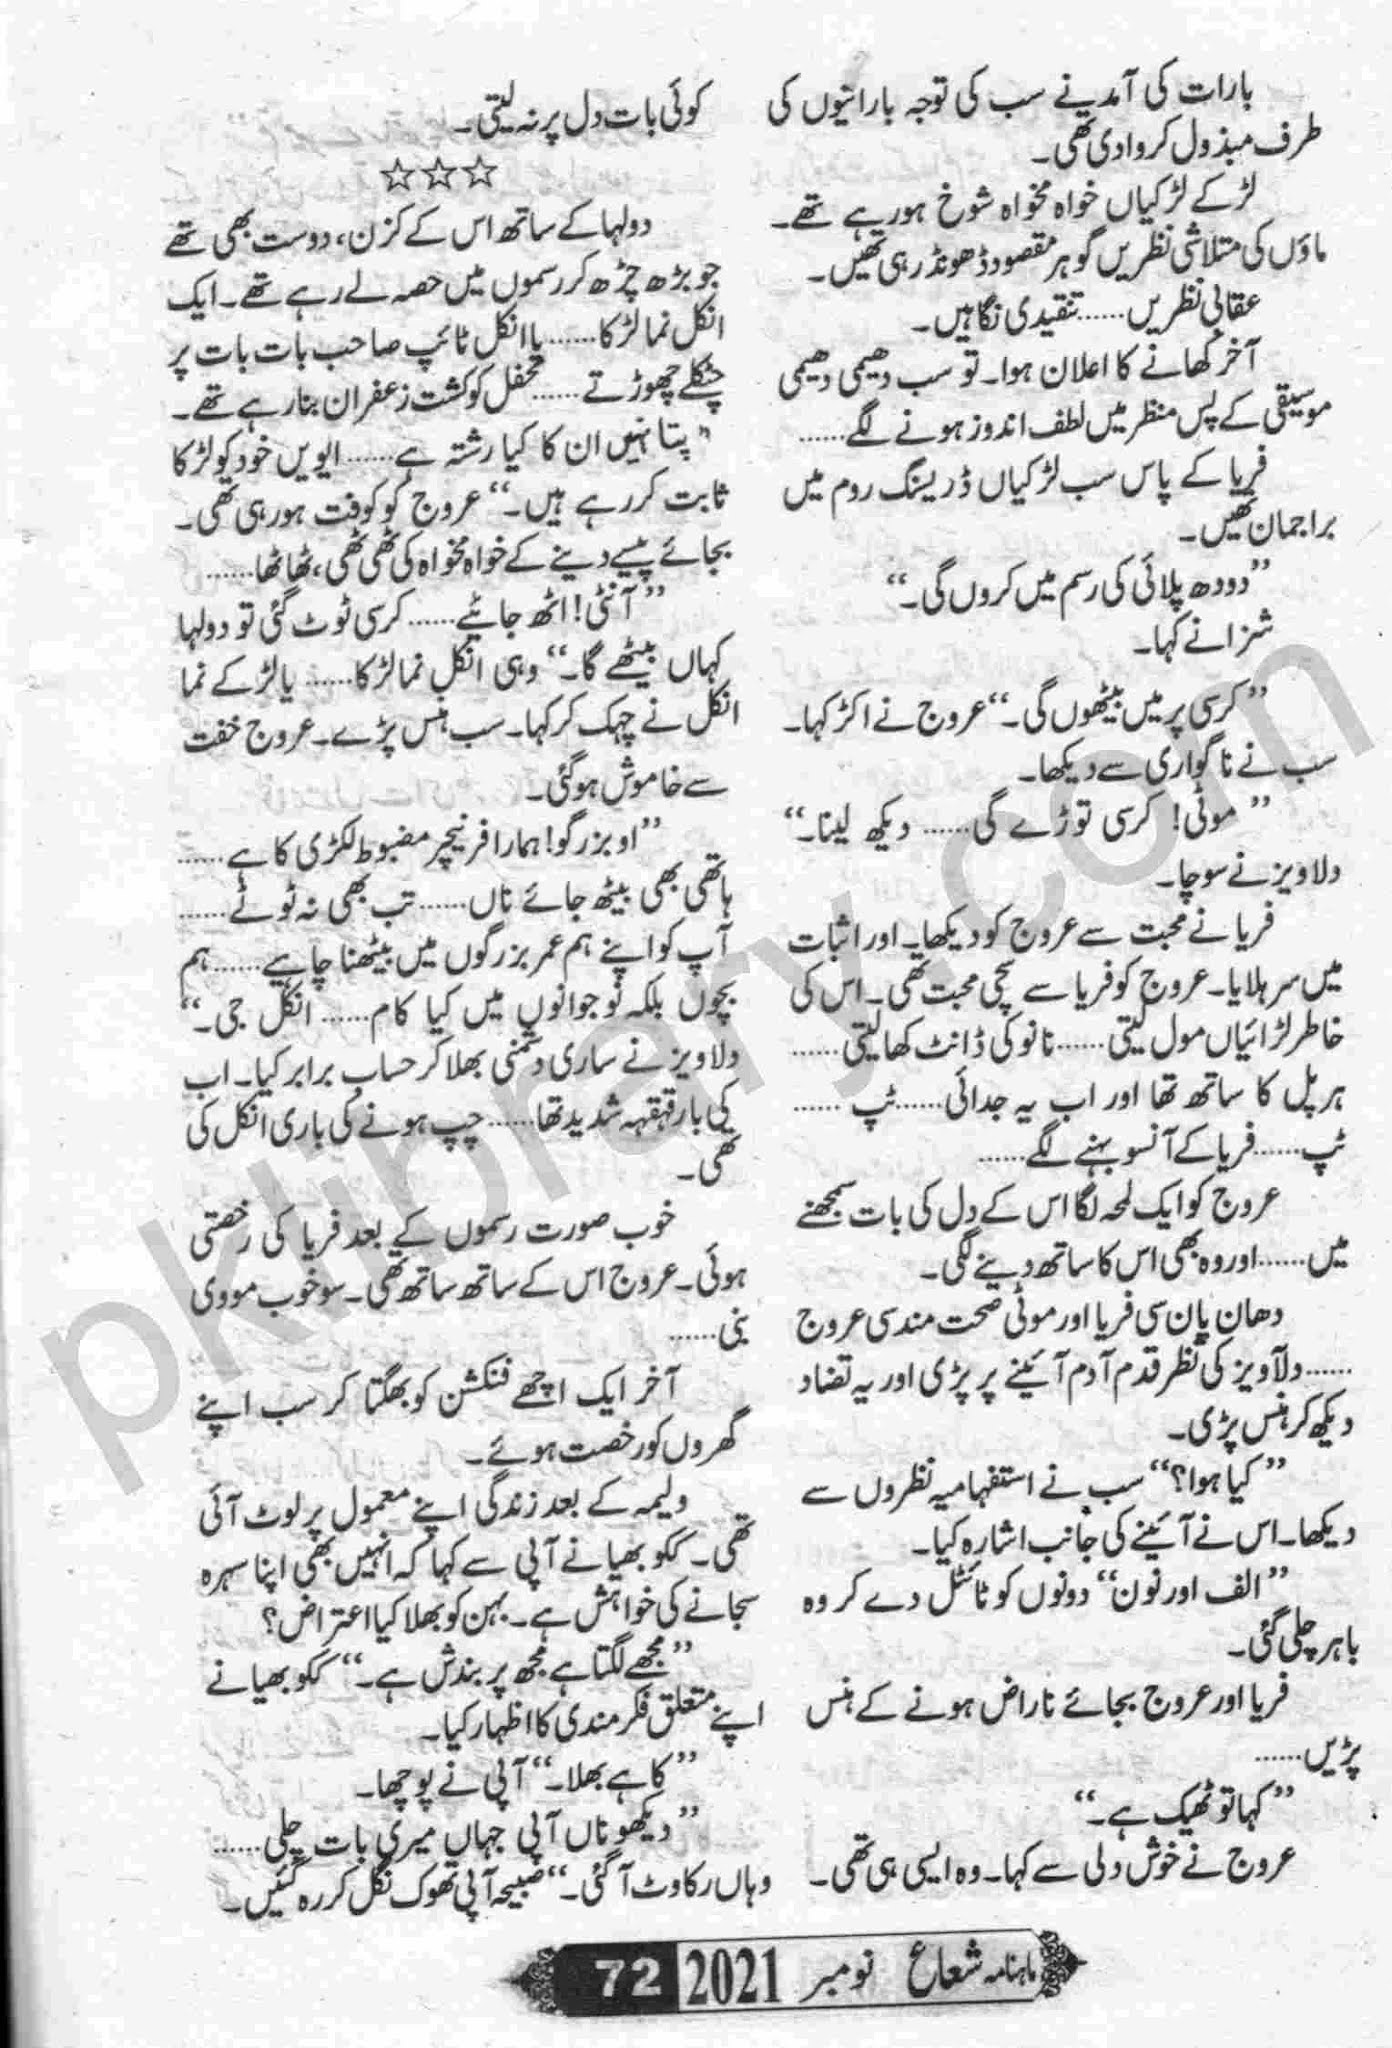 بارات کی آمد نے سب کی توجہ باراتیوں کی
طرف مبذول کروا دی تھی۔
لڑکے لڑکیاں خواہ مخواہ شوخ ہو رہے تھے۔
ماؤں کی متلاشی نظریں گوہر مقصود ڈھونڈ رہی تھیں۔
عقابی نظریں...... تنقیدی نگاہیں۔
آخر کھانے کا اعلان ہوا۔ تو سب دھیمی دھیمی
موسیقی کے پس منظر میں لطف اندوز ہونے لگے......
فریا کے پاس سب لڑکیاں ڈریسنگ روم میں
براجمان تھیں۔
”دودھ پلائی کی رسم میں کروں گی۔“
شزا نے کہا۔
”کرسی پر میں بیٹھوں گی۔“ عروج نے اکڑ کہا۔
سب نے ناگواری سے دیکھا۔
”موٹی! کرسی توڑے گی...... دیکھ لینا۔“
دلاویز نے سوچا۔
فریا نے محبت سے عروج کو دیکھا۔ اور اثبات
میں سر ہلایا۔ عروج کو فریا سے سچی محبت تھی۔ اس کی
خاطر لڑائیاں مول لیتی...... نانو کی ڈانٹ کھا لیتی......
ہر پل کا ساتھ تھا اور اب یہ جدائی...... ٹپ ......
ٹپ...... فریا کے آنسو بہنے لگے......
عروج کو ایک لمحہ لگا اس کے دل کی بات سمجھنے
میں...... اور وہ بھی اس کا ساتھ دینے لگی۔
دھان پان سی فریا اور موٹی صحت مند سی عروج
...... دلآویز کی نظر قدم آدم آئینے پر پڑی اور یہ تضاد
دیکھ کر ہنس پڑی۔
”کیا ہوا؟“ سب نے استفہامیہ نظروں سے
دیکھا۔ اس نے آئینے کی جانب اشارہ کیا۔
”الف اور نون“ دونوں کو ٹائٹل دے کر وہ
باہر چلی گئی۔
فریا اور عروج بجائے ناراض ہونے کے ہنس
پڑیں......
”کہا تو ٹھیک ہے۔“
عروج نے خوش دلی سے کہا۔ وہ ایسی ہی تھی۔
کوئی بات دل پر نہ لیتی۔
☆☆☆
دولہا کے ساتھ اس کے کزن، دوست بھی تھے
جو بڑھ چڑھ کر رسموں میں حصہ لے رہے تھے۔ ایک
انکل نما لڑکا...... یا انکل ٹائپ صاحب بات بات پر
چٹکلے چھوڑتے...... محفل کو کشت زعفران بنا رہے تھے۔
”پتا نہیں ان کا کیا رشتہ ہے...... ایویں خود کو لڑکا
ثابت کر رہے ہیں۔“ عروج کو کوفت ہو رہی تھی۔
بجائے پیسے دینے کے خواہ مخواہ کی ٹھی ٹھی، ٹھا ٹھا......
”آنٹی! اٹھ جائیے...... کرسی ٹوٹ گئی تو دولہا
کہاں بیٹھے گا۔“ وہی انکل نما لڑکا...... یا لڑکے نما
انکل نے چہک کر کہا۔ سب ہنس پڑے۔ عروج خفت
سے خاموش ہو گئی۔
”او بزرگو! ہمارا فرنیچر مضبوط لکڑی کا ہے......
ہاتھی بھی بیٹھ جائے ناں...... تب بھی نہ ٹوٹے......
آپ کو اپنے ہم عمر بزرگوں میں بیٹھنا چاہیے...... ہم
بچوں بلکہ نوجوانوں میں کیا کام...... انکل جی۔“
دلاویز نے ساری دشمنی بھلا کر حساب برابر کیا۔ اب
کی بار قہقہہ شدید تھا...... چپ ہونے کی باری انکل کی
تھی۔
خوب صورت رسموں کے بعد فریا کی رخصتی
ہوئی۔ عروج اس کے ساتھ ساتھ تھی۔ سو خوب مووی
بنی......
آخر ایک اچھے فنکشن کو بھگتا کر سب اپنے
گھروں کو رخصت ہوئے۔
ولیمہ کے بعد زندگی اپنے معمول پر لوٹ آئی
تھی۔ ککو بھیا نے آپی سے کہا کہ انہیں بھی اپنا سہرہ
سجانے کی خواہش ہے۔ بہن کو بھلا کیا اعتراض؟
”مجھے لگتا ہے مجھ پر بندش ہے۔“ ککو بھیا نے
اپنے متعلق فکر مندی کا اظہار کیا۔
”کاہے بھلا۔“ آپی نے پوچھا۔
”دیکھو ناں آپی جہاں میری بات چلی......
وہاں رکاوٹ آ گئی۔“ صبیحہ آپی تھوک نگل کر رہ گئیں۔
ماہنامہ شعاع نومبر 2021 72
pklibrary.com